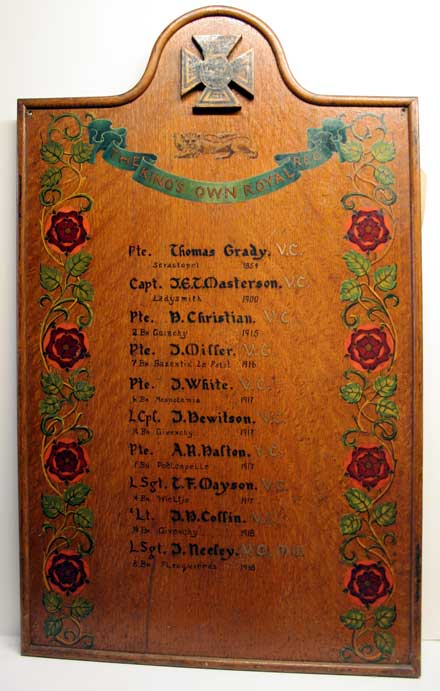 THE KING'S OWN ROYAL REG
Pte. Thomas Grady, V.C.
Sevastopol 1854
Capt. J.E.I. Masterson, V.C.
Ladysmith 1900
Pte. H. Christian, V.C.
2 Bn Cuinchy 1915
Pte. J. Miller, V.C.
7 Bn Bazentin Le Petit 1916
Pte. J. White, V.C.
6 Bn Mesopotamia 1917
L Cpl. J. Hewitson, V.C.
4 Bn Givenchy
Pte. A.H. Halton, V.C.
1 Bn Poelcapelle 1917
L Sgt. T.F. Mayson, V.C.
4 Bn Wieltje 1917
2/Lt. J.H. Collin, V.C.
4 Bn Givenchy 1918
L Sgt. T. Neeley, V.C. M.M.
8 Bn Flesquieres 1918